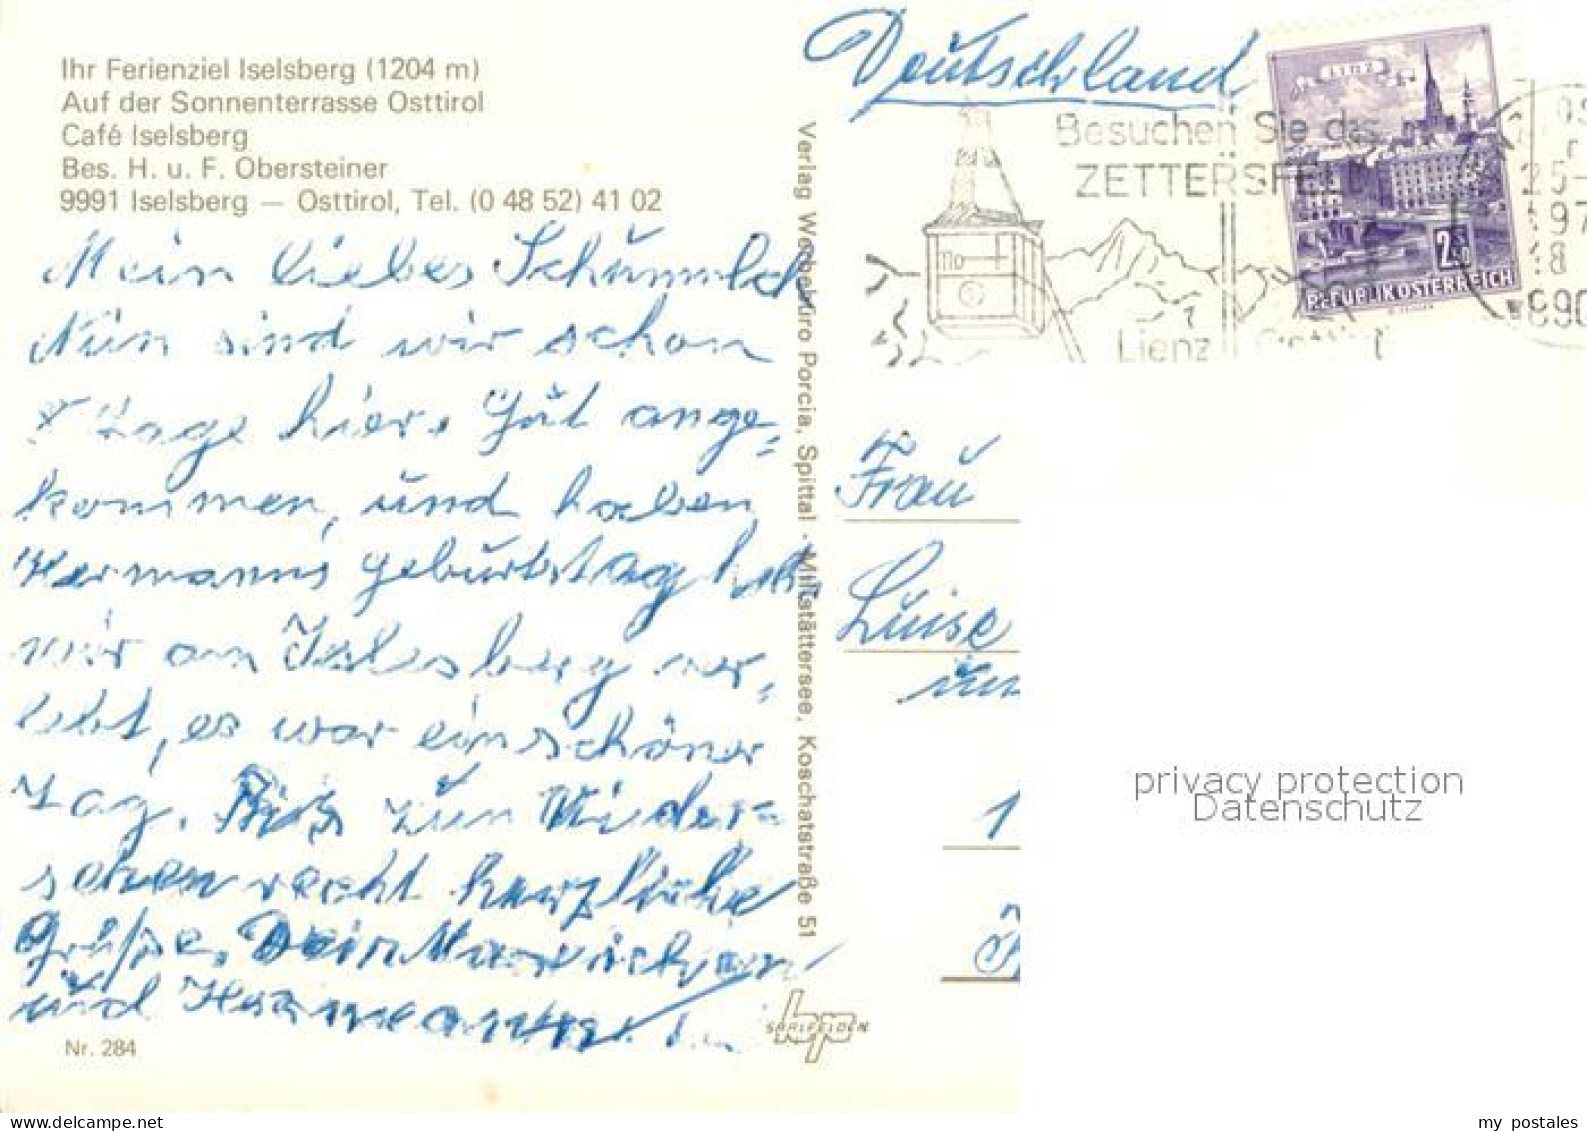 Ihr Ferienziel Iselsberg (1204 m)
Auf der Sonnenterrasse Osttirol
Café Iselsberg
Bes. H. u. F. Obersteiner
9991 Iselsberg — Osttirol, Tel. (0 48 52) 41 02
Mein liebes
Nun sind wir schon
Tage hier. Gut ange=
kommen, und haben
Hermanns Geburtstag
wir am Iselsberg ver=
lebt, es war ein schöner
Tag. Bis zum Wieder=
sehen recht herzliche
Grüße, Dein
und
Nr. 284
Verlag Werbebüro Porcia, Spittal · Millstättersee, Koschatstraße 51
hp
SAALFELDEN
Deutschland
Besuchen Sie das
ZETTERSFELD
Lienz
LINZ
2.50
REPUBLIK ÖSTERREICH
Frau
Luise
1
privacy protection
Datenschutz
www.delcampe.net
my_postales